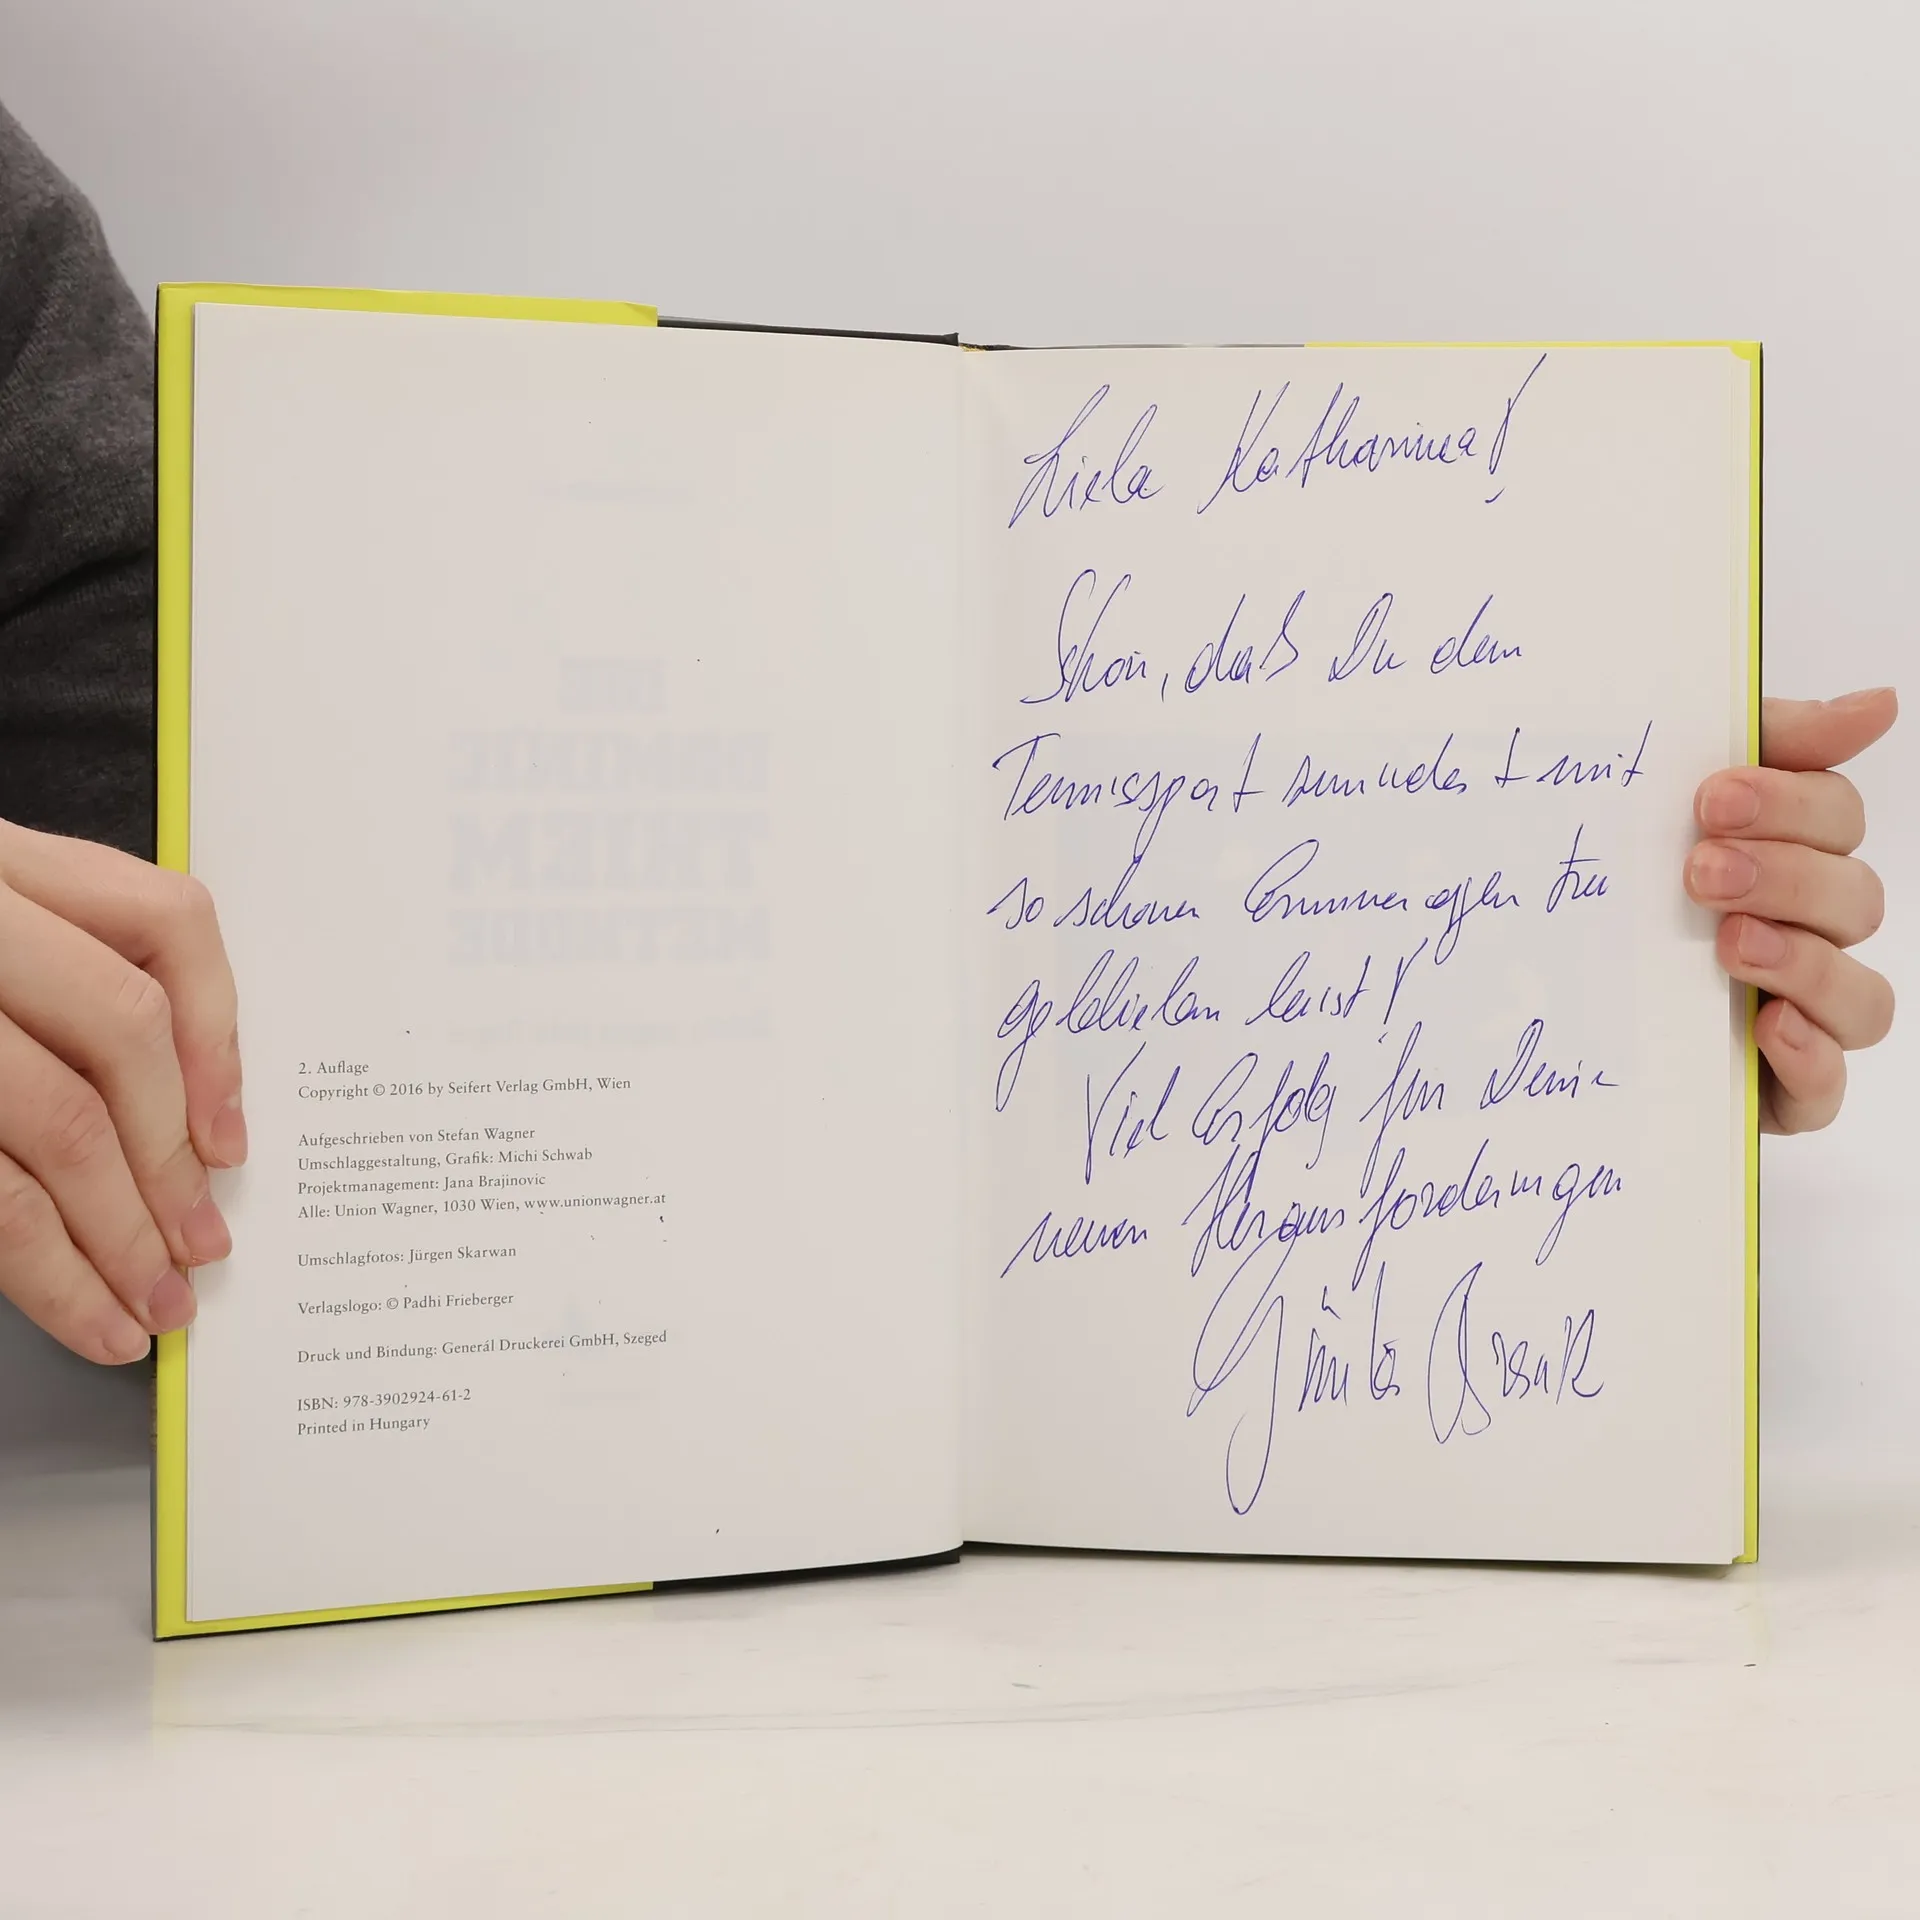 2. Auflage
Copyright © 2016 by Seifert Verlag GmbH, Wien
Aufgeschrieben von Stefan Wagner
Umschlaggestaltung, Grafik: Michi Schwab
Projektmanagement: Jana Brajinovic
Alle: Union Wagner, 1030 Wien, www.unionwagner.at
Umschlagfotos: Jürgen Skarwan
Verlagslogo: © Padhi Frieberger
Druck und Bindung: Generál Druckerei GmbH, Szeged
ISBN: 978-3902924-61-2
Printed in Hungary
Liebe Katharina!
Schön, daß Du dem
Tennissport zumindest mit
so schönen Erinnerungen treu
geblieben bist!
Viel Erfolg für Deine
neuen Herausforderungen
Günter Bresnik